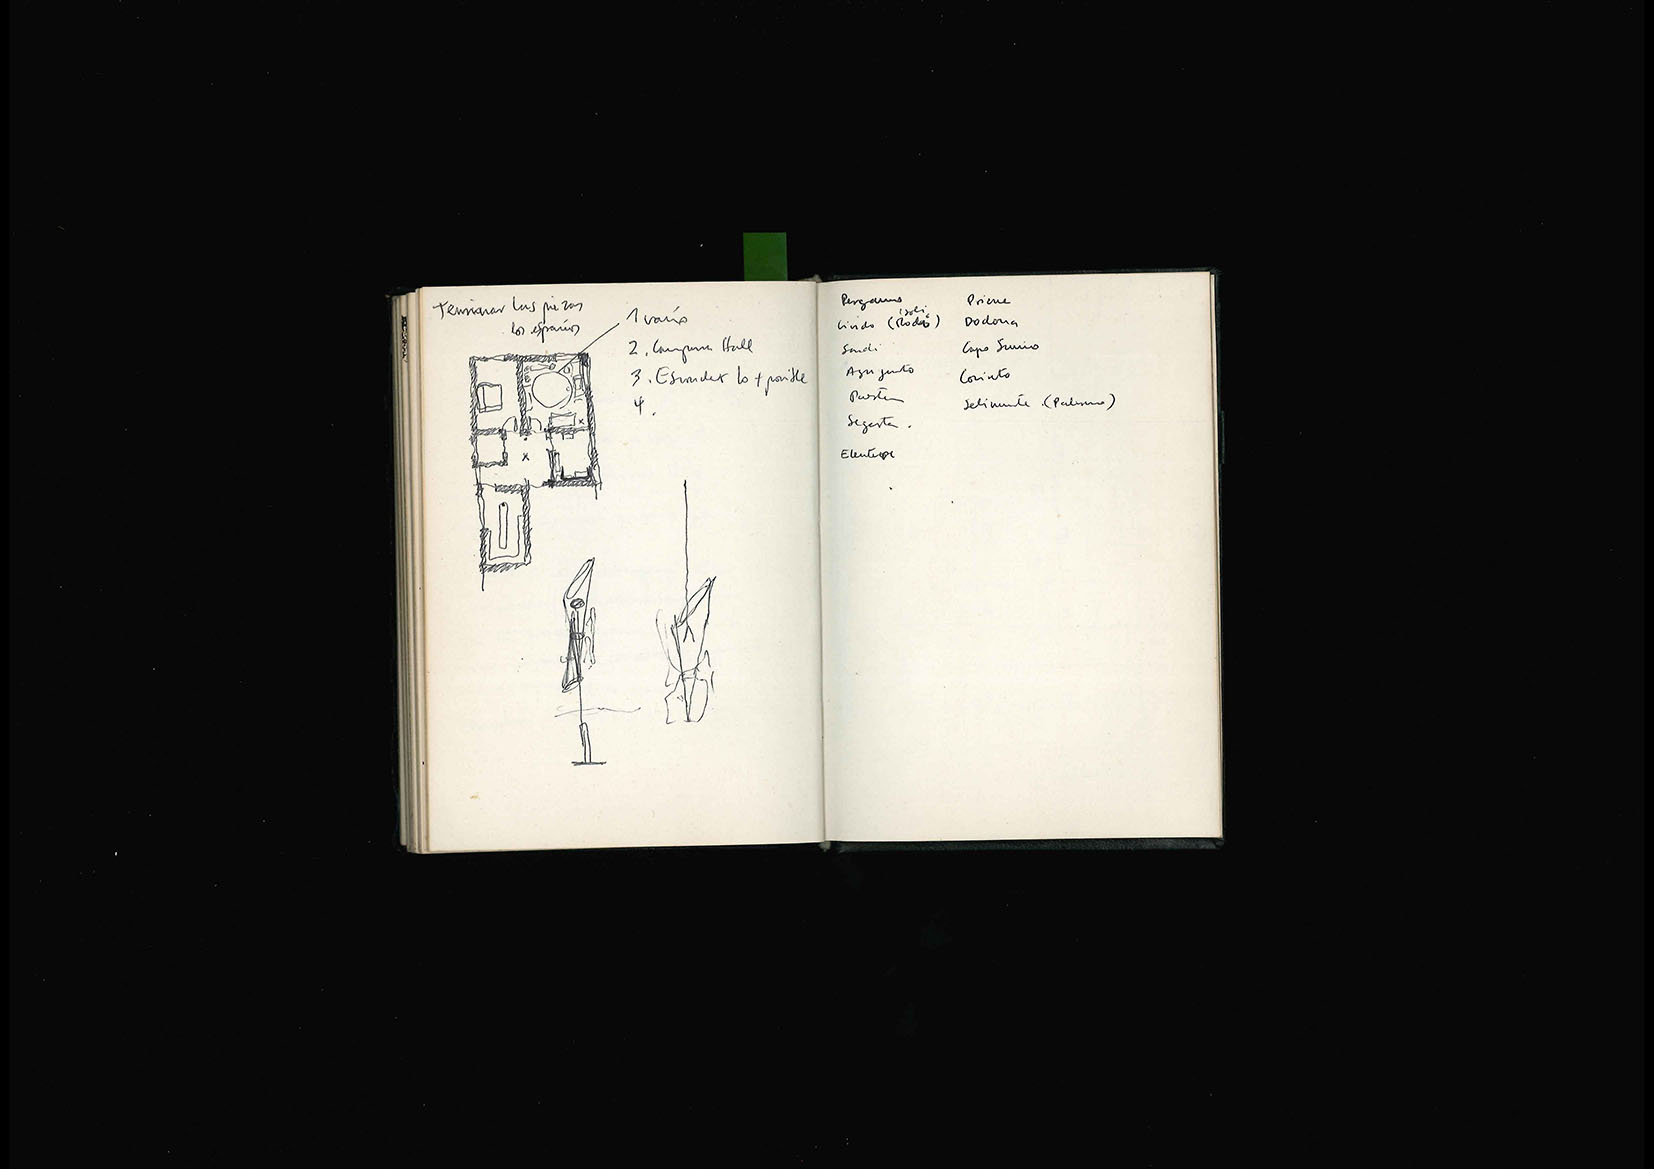 Terminar las piezas
los espacios
1 varió
2. Campana Hall
3. Esconder lo + posible
4.
Pergamo
Lindo (Rodas)
Sardi
Agrigento
Paestum
Segesta.
Priene
Dodona
Capo Sunio
Corinto
Selinunte (Palermo)